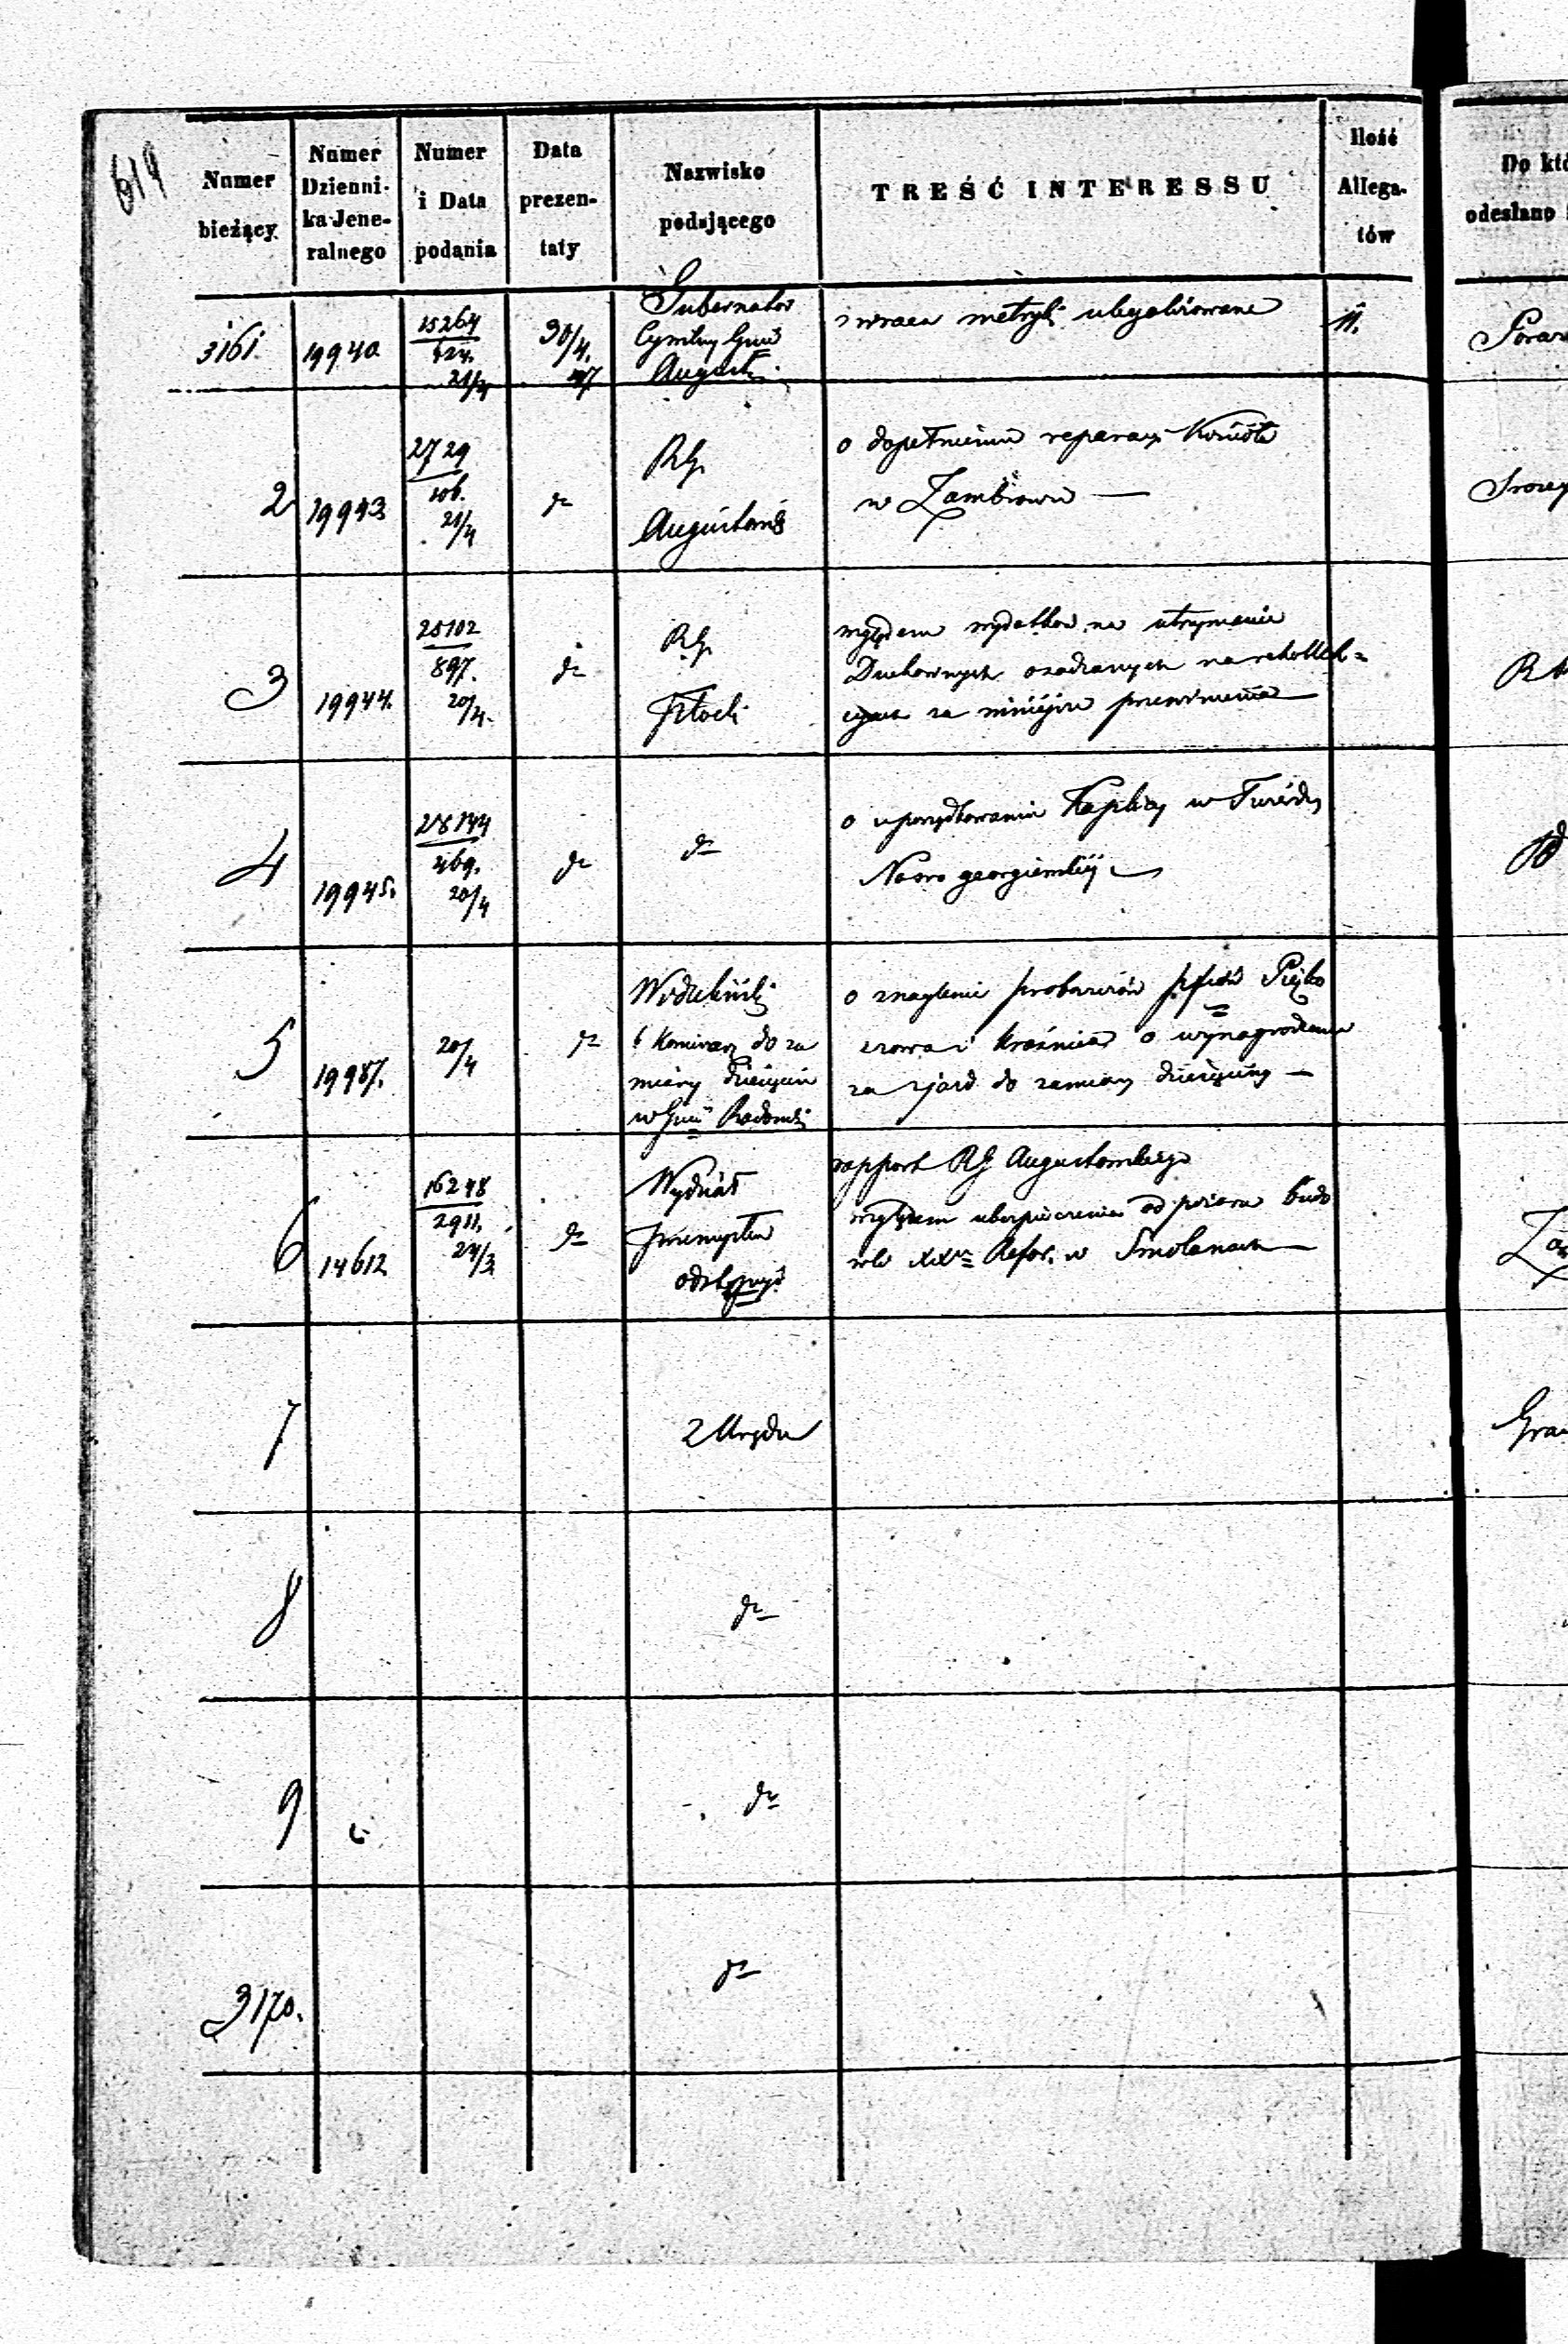 619
Numer bieżący
Numer Dzienni- ka Jene- ralnego
Numer i Data podania
Data prezen- taty
Nazwisko podającego
TREŚĆ INTERESSU
Ilość Allega- tów
Do któ
odesłano
3161. 19940. 15264 21/4 30/4. 47 Gubernator Cywilny Gub Augusts. zwraca metryki ulegalizowane 11.
2 19943 2729 106. 21/4 do RG. Augustows o dopełnieniu reparacyi Kościoła
w Zambrowie —
3 19944. 25102 897. 20/4. do RG. Płocki względem wydatków na utrzymanie
Duchownych osadzanych na rekollek=
cyach za mniejsze przewinienia —
4 19945. 28144 469. 20/4 do do o uporządkowaniu Kaplicy w Twierdzy
Nowo georgiewskiej —
5 19987. 20/4 do
do za
miany dziesięcin
w Gub Radomski
o znaglenie proboszczów
i Kraśnica o wynagrodzenie
za zjazd do zamiany dziesięciny —
6 14612 16248 2911. 24/3 do Wydział
Przemysłu
rapport RG Augustowskiego
względem ubezpieczenia od pożaru budo
wli Refor. w Smolanach —
7 z Urzędu
8 do
9 do
3170. do
Gra